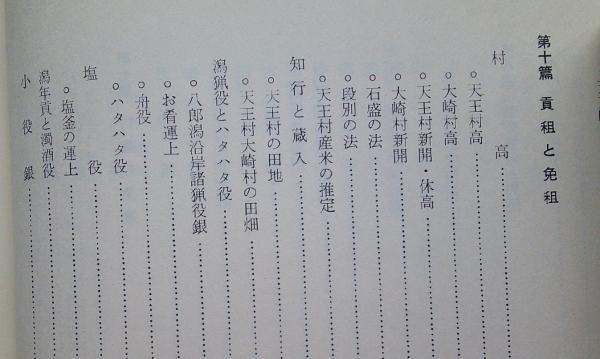 第十篇 貢租と免租
村高
○天王村高
○大崎村高
○天王村新開・休高
○大崎村新開
○石盛の法
○段別の法
○天王村産米の推定
知行と蔵入
○天王村の田地
○天王村大崎村の田畑
潟猟役とハタハタ役
○八郎潟沿岸諸猟役銀
○お肴運上
○舟役
○ハタハタ役
塩役
○塩釜の運上
潟年貢と濁酒役
小役銀